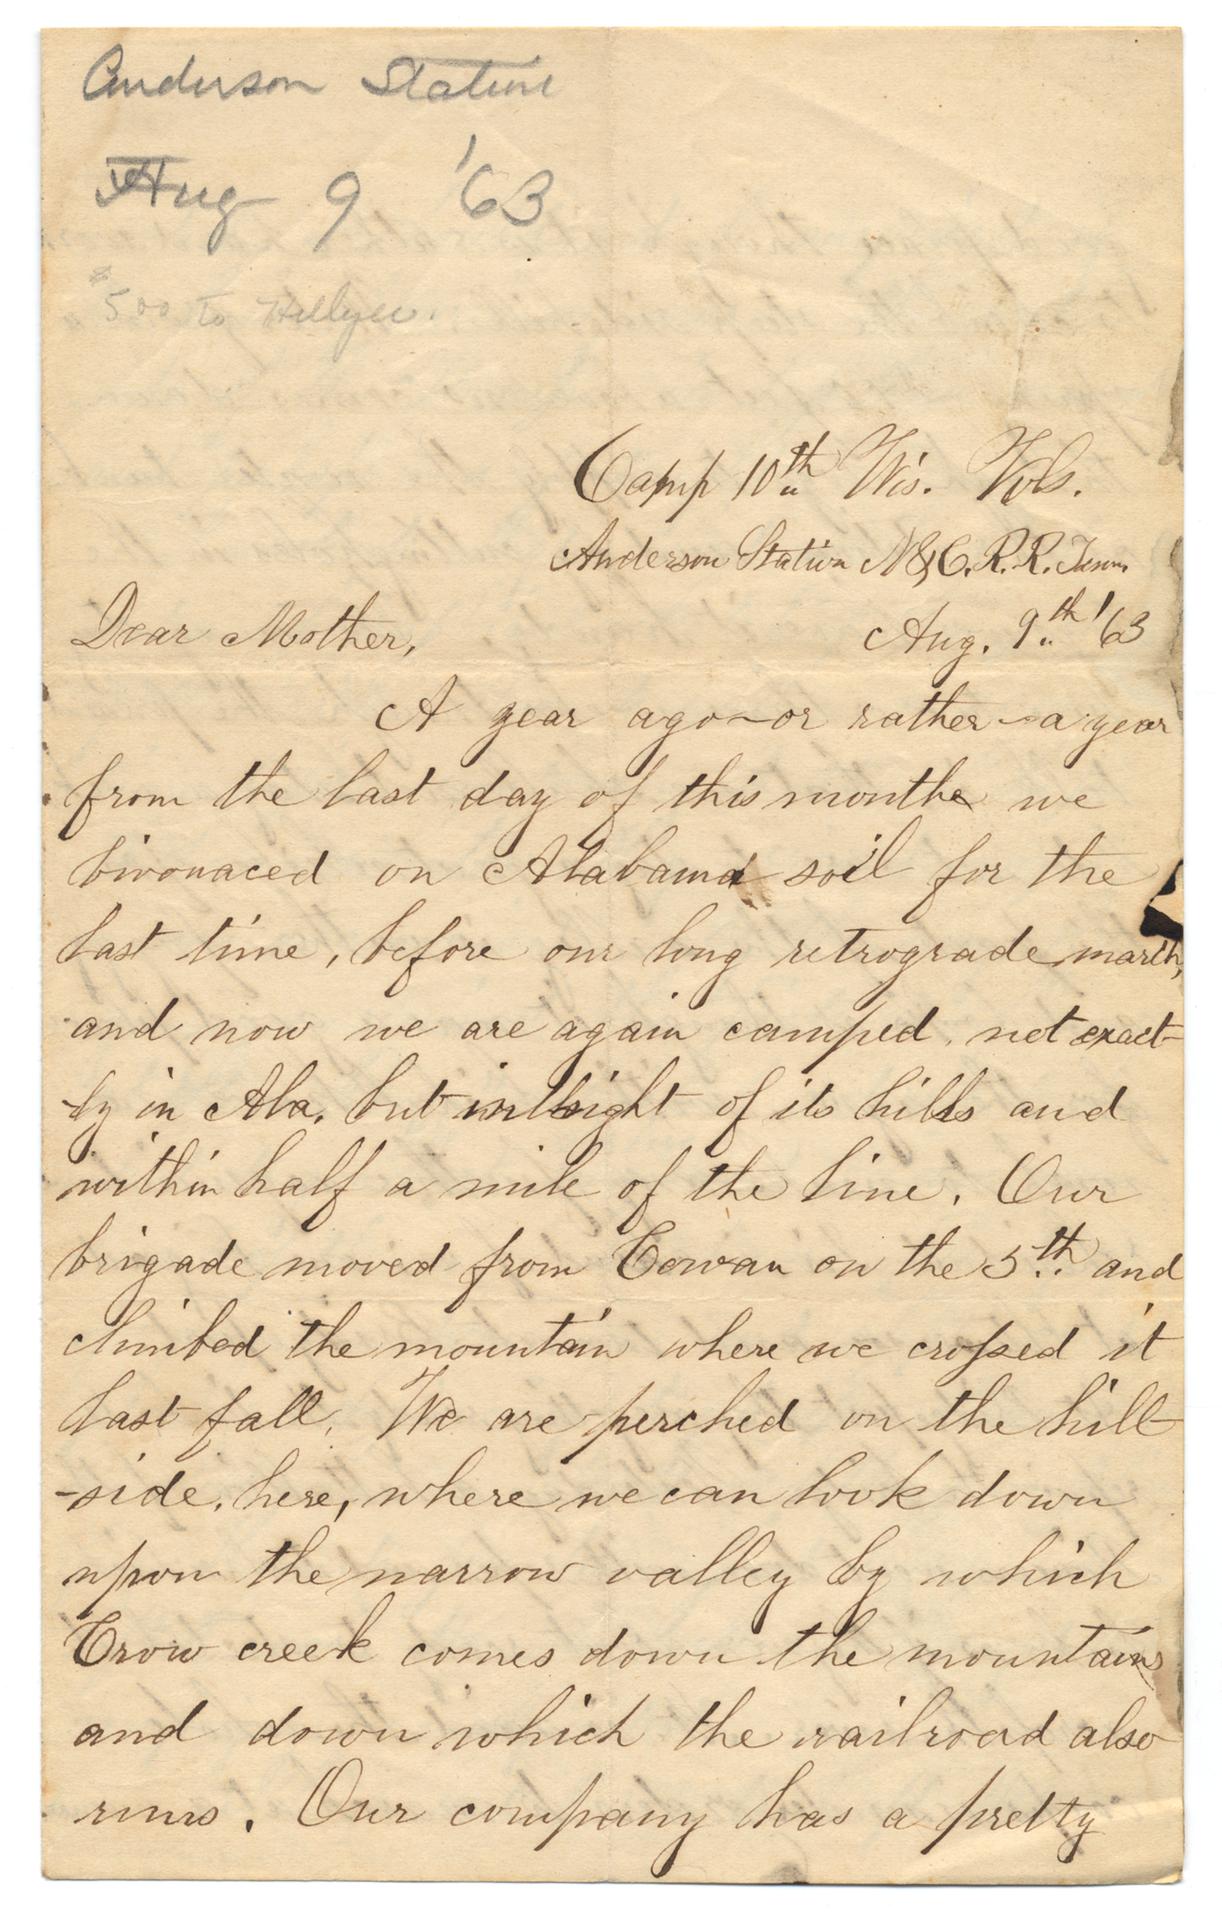 Anderson Station
Aug 9 '63
$500 to Hillyer.
Camp 10th Wis. Vols.
Anderson Station N&C. R. R. Tenn.
Aug. 9th '63
Dear Mother,
A year ago—or rather—a year
from the last day of this month we
bivouaced on Alabama soil for the
last time, before our long retrograde march,
and now we are again camped, not exact-
-ly in Ala. but in sight of its hills and
within half a mile of the line. Our
brigade moved from Cowan on the 5th and
climbed the mountain where we crossed it
last fall. We are perched on the hill
-side, here, where we can look down
upon the narrow valley by which
Crow creek comes down the mountains
and down which the railroad also
runs. Our company has a pretty